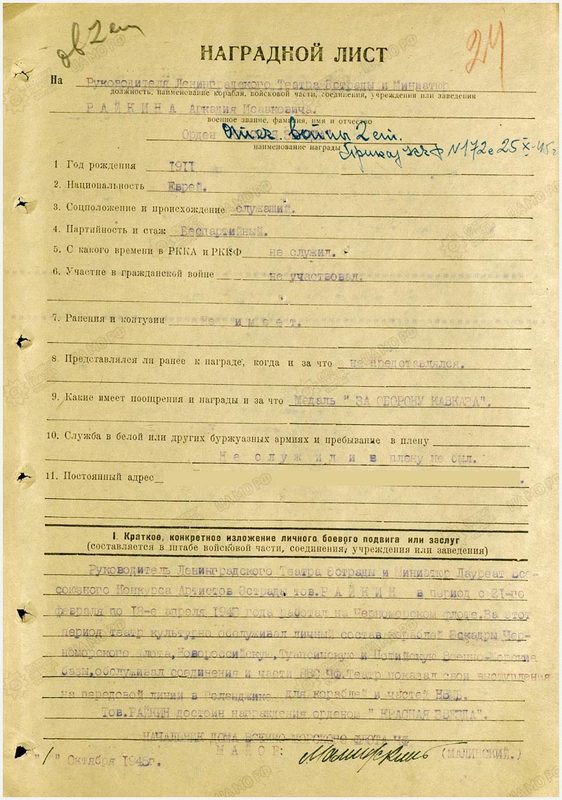 ов 2 ст
24
НАГРАДНОЙ ЛИСТ
На Руководителя Ленинградского Театра Эстрады и Миниатюр
должность, наименование корабля, войсковой части, соединения, учреждения или заведения
РАЙКИНА Аркадия Исааковича.
воинское звание, фамилия, имя и отчество
Орден Отеч. войны 2 ст.
наименование награды Приказ N 172 с 25 X-45 г
1 Год рождения 1911
2. Национальность Еврей.
3. Соцположение и происхождение служащий.
4. Партийность и стаж Беспартийный.
5. С какого времени в РККА и РКВФ не служил.
6. Участие в гражданской войне не участвовал.
7. Ранения и контузии не имеет.
8. Представлялся ли ранее к награде, когда и за что не представлялся.
9. Какие имеет поощрения и награды и за что Медаль " ЗА ОБОРОНУ КАВКАЗА".
10. Служба в белой или других буржуазных армиях и пребывание в плену
Не служил и в плену не был.
11. Постоянный адрес
I. Краткое, конкретное изложение личного боевого подвига или заслуг
(составляется в штабе войсковой части, соединения, учреждения или заведения)
Руководитель Ленинградского Театра Эстрады и Миниатюр Лауреат Все-
союзного Конкурса Артистов Эстрады тов. РАЙКИН в период с 21-го
февраля по апреля года работал на Черноморском флоте. За этот
период театр культурно обслуживал личный состав кораблей Эскадры Чер-
номорского Флота, Новороссийскую, Туапсинскую и Потийскую Военно-Морские
базы, обслуживал соединения и части ВВС ЧФ. Театр показал свои выступления
на передовой линии в Геленджике для кораблей и частей НВМБ.
Тов. РАЙКИН достоин награждения орденом " КРАСНАЯ ЗВЕЗДА".
НАЧАЛЬНИК ДОМА ВОЕННО-МОРСКОГО ФЛОТА ЧФ
МАЙОР: (МАЛИНСКИЙ.)
"1" Октября 1945г.